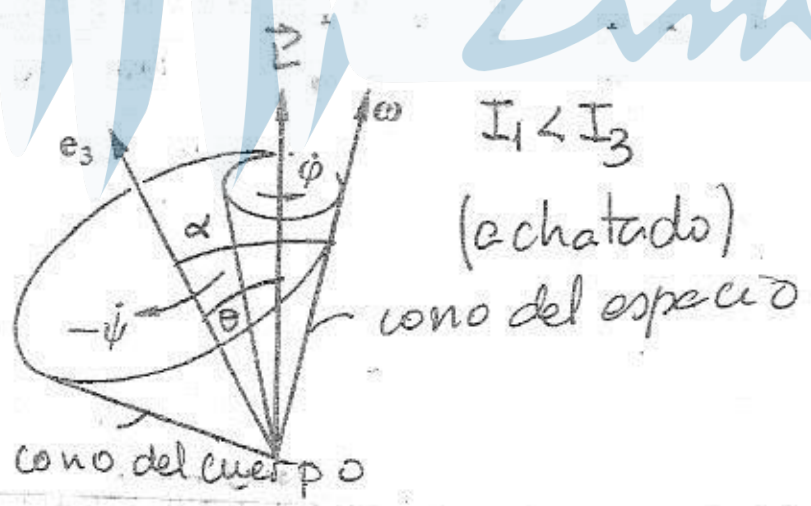 L
e₃
ω
I₁ < I₃
φ̇
α
(achatado)
-ψ̇
θ
cono del espacio
cono del cuerpo